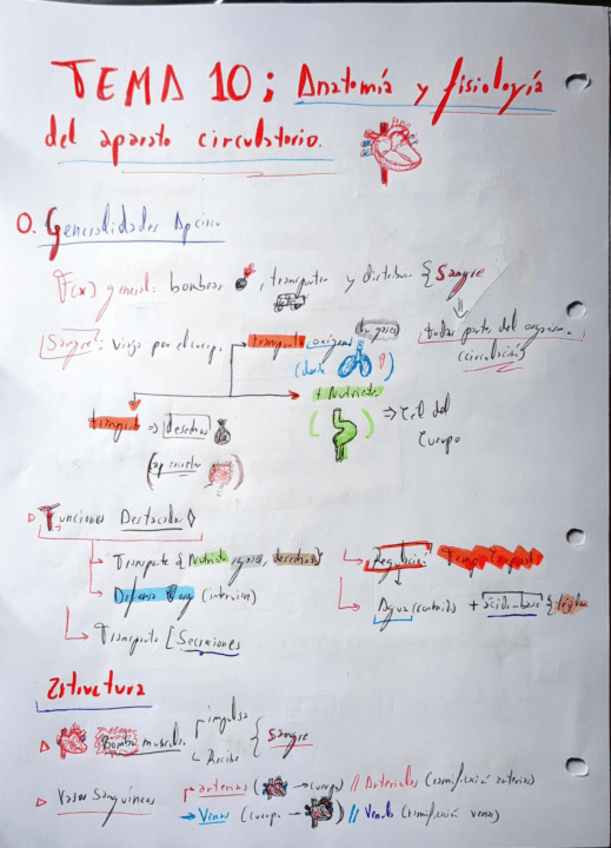 TEMA 10: Anatomía y fisiología
del aparato circulatorio.
0. Generalidades Ap circ
F(x) general: bombear, transportar y distribuir { Sangre
todas partes del organismo.
(circulación)
Sangre: viaja por el cuerpo.
transporte oxígeno gases
(desde
+ Nutrientes
transporte => desechos
=> Cel del
Cuerpo
(ap excretor
Funciones Destacadas
Transporte Nutrientes, gases, desechos
Defensa (interviene)
Transporte [Secreciones
Regulación
Agua contenido + ácido-base tejidos
Estructura
Bomba muscular impulsa
Recibe { Sangre
Vasos Sanguíneos
arterias ( → cuerpo) // Arteriolas (ramificación arterias)
Venas (cuerpo → ) // Venulas (ramificación venas)